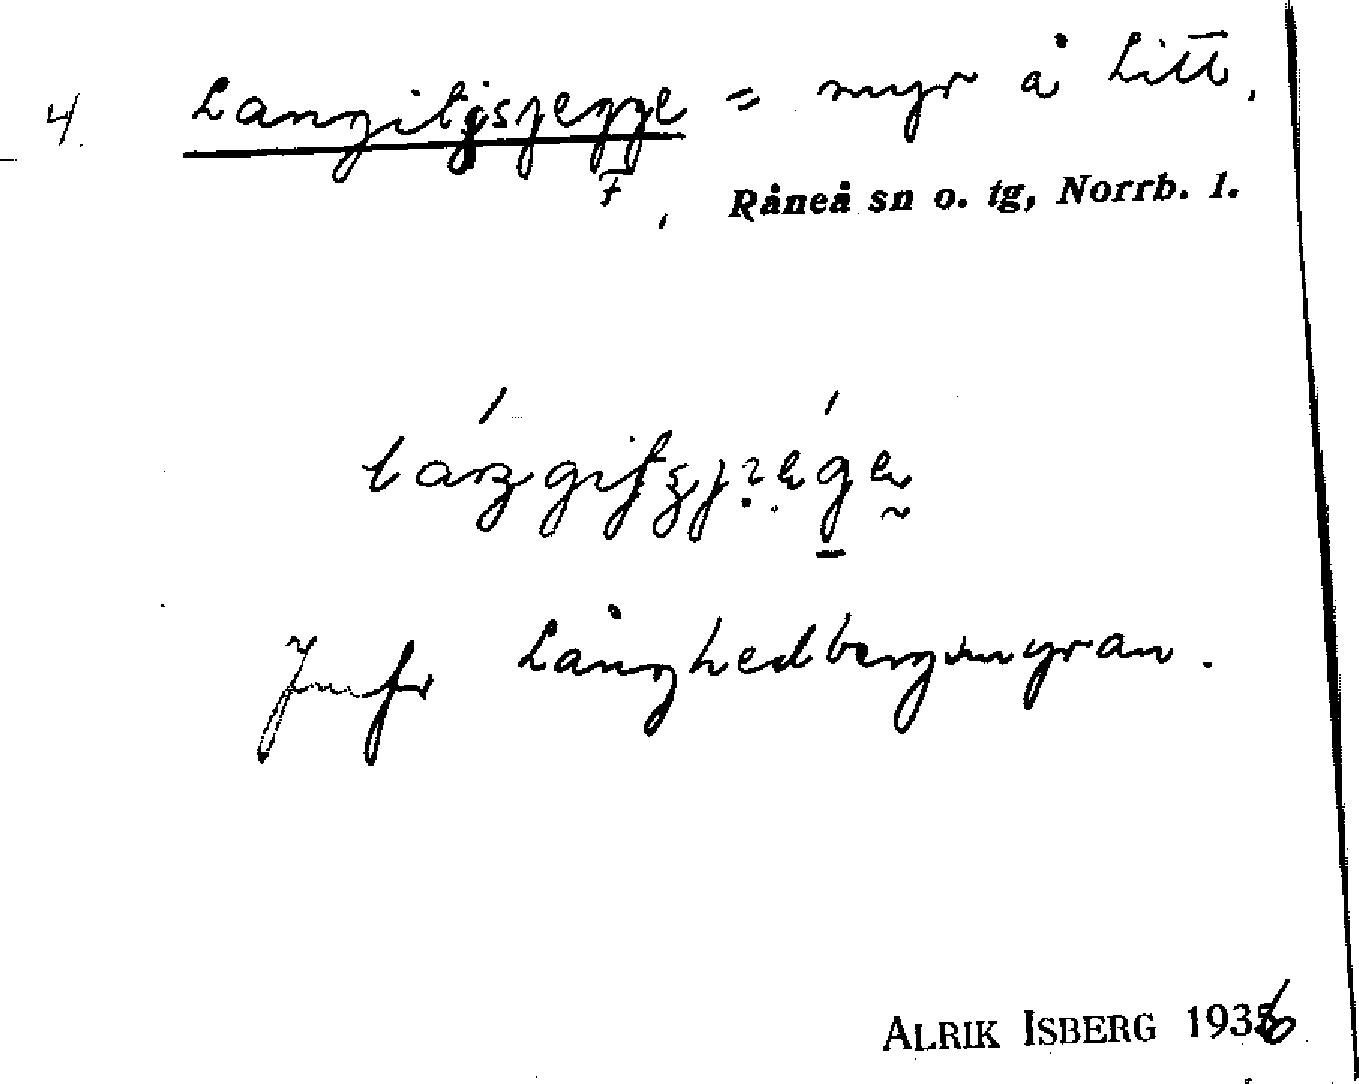 4. Langitjsjegge = myr å Litt.
F
, Råneå sn o. tg, Norrb. l.
Jmfr Långhedbergsmyran.
ALRIK ISBERG 1936